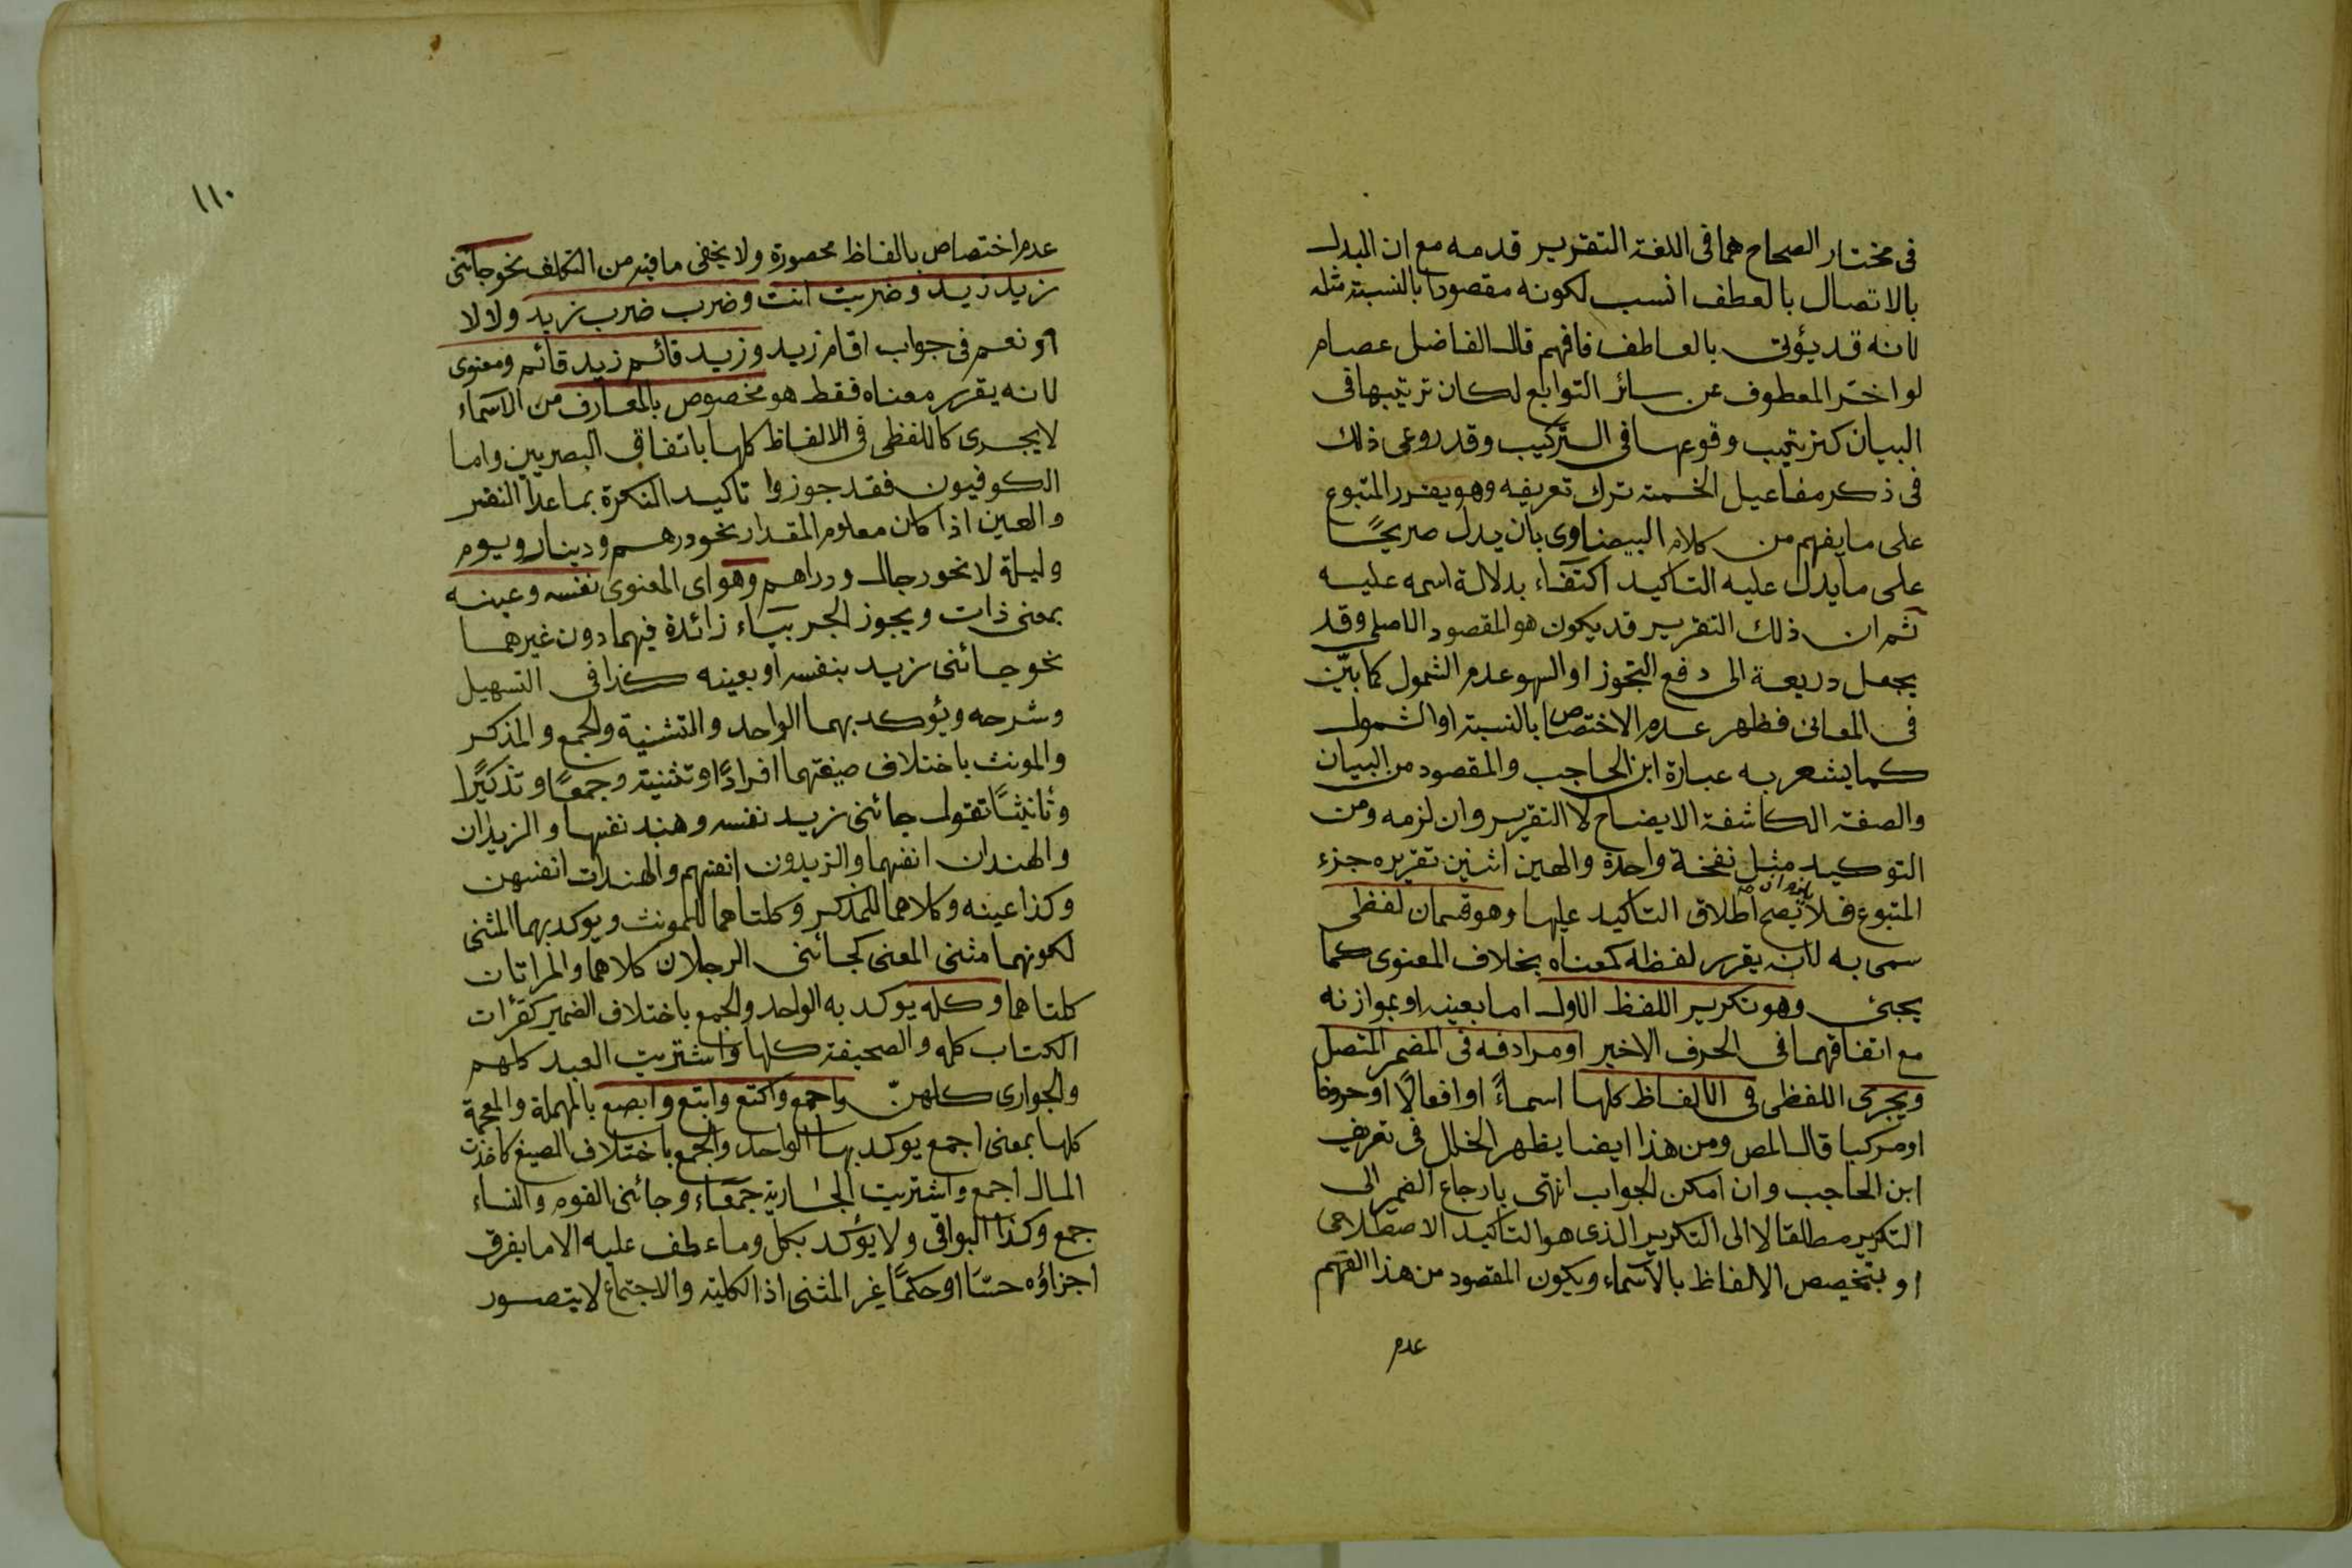 فى مختار الصحاح هما فى اللغة التقرير قدمه مع ان البدل
بالاتصال بالعطف انسب لكونه مقصودا بالنسبة مثله
لانه قد يؤتى بالعاطف فافهم قال الفاضل عصام
لو اخر المعطوف عن سائر التوابع لكان ترتيبها فى
البيان كترتيب وقوعها فى التركيب وقد روعى ذلك
فى ذكر مفاعيل الخمسة ترك تعريفه وهو يقرر المتبوع
على ما يفهم من كلام البيضاوى بان يدل صريحًا
على ما يدل عليه التاكيد اكتفاء بدلالة اسمه عليه
ثم ان ذلك التقرير قد يكون هو المقصود الاصلى وقد
يجعل ذريعة الى دفع التجوز او السهو عدم الشمول كما بيّن
فى المعانى فظهر عدم الاختصاص بالنسبة او الشمول
كما يشعر به عبارة ابن الحاجب والمقصود من البيان
والصفة الكاشفة الايضاح لا التقرير وان لزمه ومن
التوكيد مثل نفخة واحدة والهين اثنين تقريره جزء
المتبوع فلا يصح اطلاق التاكيد عليها وهو قسمان لفظى
سمى به لانه يقرر لفظه كمعناه بخلاف المعنوى كما
يجئ وهو تكرير اللفظ الاول اما بعينه او بموازنه
مع اتفاقهما فى الحرف الاخير او مرادفه فى المضمر المتصل
ويجرى اللفظى فى الالفاظ كلها اسماءً او افعالًا او حروفا
او مركبا قال المص ومن هذا ايضا يظهر الخلل فى تعريف
ابن الحاجب وان امكن الجواب انتهى بارجاع الضمير الى
التكرير مطلقا لا الى التكرير الذى هو التاكيد الاصطلاحى
او بتخصيص الالفاظ بالاسماء ويكون المقصود من هذا التعميم
عدم
١١٠
عدم اختصاص بالفاظ محصورة ولا يخفى ما فيه من التكلف نحو جائنى
زيد زيد وضربت انت وضرب ضرب زيد ولا لا
او نعم فى جواب اقام زيد وزيد قائم زيد قائم ومعنوى
لانه يقرر معناه فقط هو مخصوص بالمعارف من الاسماء
لا يجرى كاللفظى فى الالفاظ كلها باتفاق البصريين واما
الكوفيون فقد جوزوا تاكيد النكرة بما عدا النفس
والعين اذا كان معلوم المقدار نحو درهم ودينار ويوم
وليلة لا نحو رجال ودراهم وهو اى المعنوى نفسه وعينه
بمعنى ذات ويجوز الجر بباء زائدة فيهما دون غيرهما
نحو جائنى زيد بنفسه او بعينه كذا فى التسهيل
وشرحه ويؤكد بهما الواحد والتثنية والجمع والمذكر
والمونث باختلاف صيغتهما افرادًا وتثنية وجمعًا وتذكيرًا
وتانيثًا تقول جائنى زيد نفسه وهند نفسها والزيدان
والهندان انفسهما والزيدون انفسهم والهندات انفسهن
وكذا عينه وكلاهما للمذكر وكلتاهما للمونث ويوكد بهما المثنى
لكونهما مثنى المعنى كجائنى الرجلان كلاهما والمراتان
كلتاهما وكله يوكد به الواحد والجمع باختلاف الضمير كقرأت
الكتاب كله والصحيفة كلها واشتريت العبد كلهم
والجوارى كلهنّ واجمع واكتع وابتع وابصع بالمهملة والمعجمة
كلها بمعنى اجمع يوكد بها الواحد والجمع باختلاف الصيغ كاخذت
المال اجمع واشتريت الجارية جمعاء وجائنى القوم والنساء
جمع وكذا البواقى ولا يؤكد بكل وما عطف عليه الا ما يفرق
اجزاؤه حسًا او حكمًا غير المثنى اذ الكلية والاجتماع لا يتصور